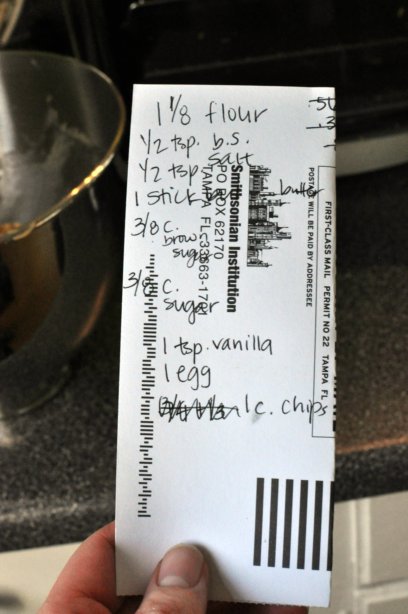 1 1/8 flour
1/2 tsp. b.s.
1/2 tsp. salt
1 stick butter
3/8 c.
brow.
sugar
3/8 c.
sugar
1 tsp. vanilla
1 egg
1 c. chips
Smithsonian Institution
PO BOX 62170
TAMPA FL 33663-1
POSTAGE WILL BE PAID BY ADDRESSEE
FIRST-CLASS MAIL PERMIT NO 22 TAMPA FL
.50